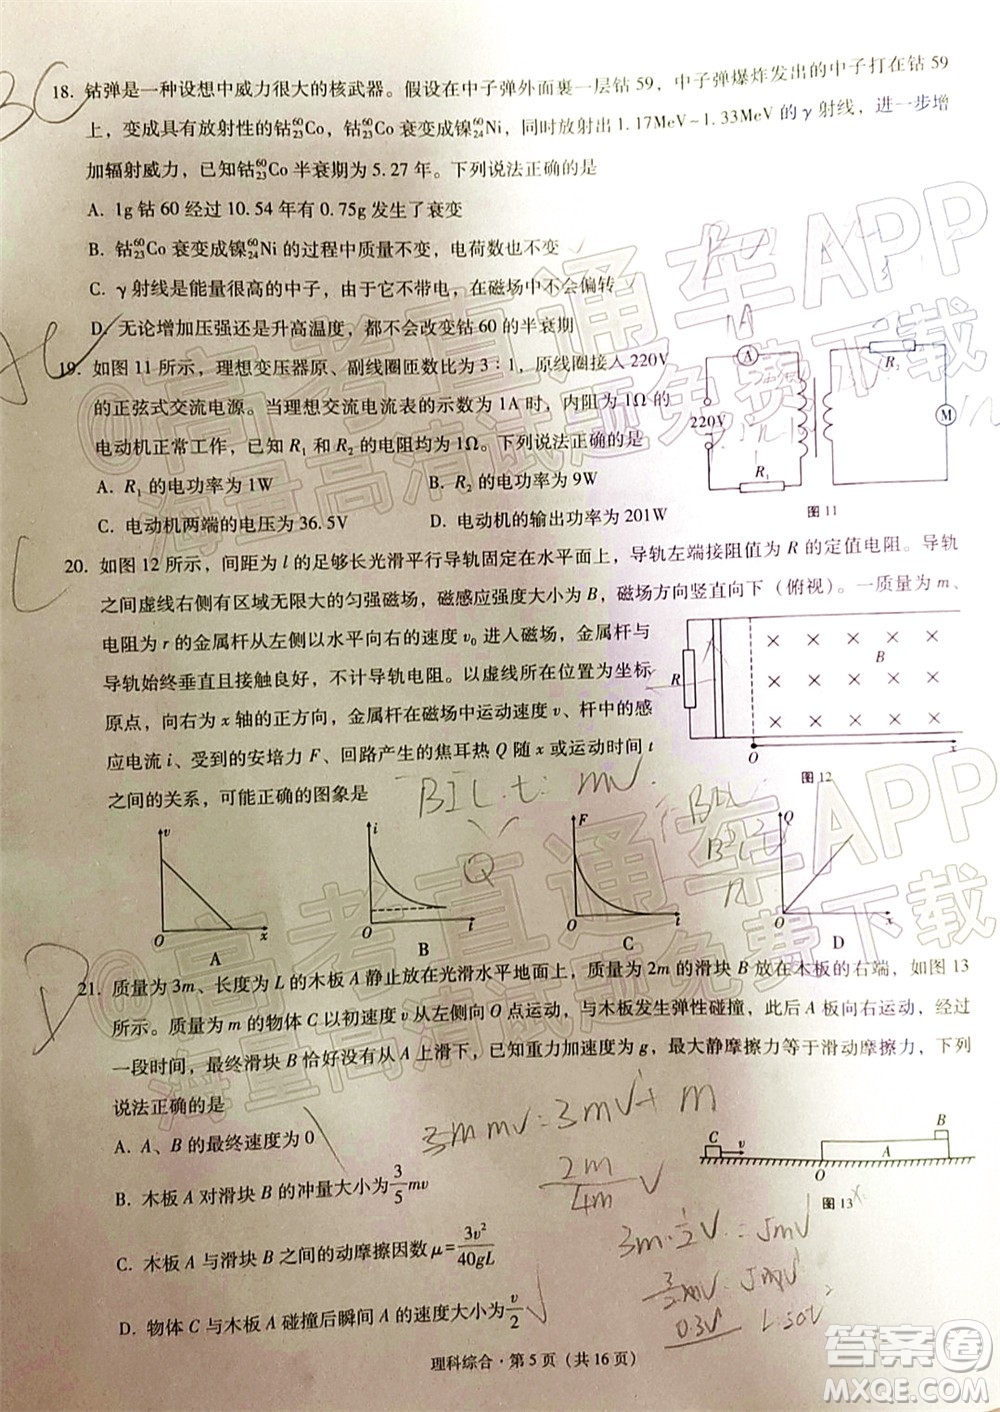 18. 钴弹是一种设想中威力很大的核武器。假设在中子弹外面裹一层钴 59，中子弹爆炸发出的中子打在钴 59
上，变成具有放射性的钴⁶⁰₂₃Co，钴⁶⁰₂₃Co 衰变成镍⁶⁰₂₄Ni，同时放射出 1.17MeV~1.33MeV 的 γ 射线，进一步增
加辐射威力，已知钴⁶⁰₂₃Co 半衰期为 5.27 年。下列说法正确的是
A. 1g 钴 60 经过 10.54 年有 0.75g 发生了衰变
B. 钴⁶⁰₂₃Co 衰变成镍⁶⁰₂₄Ni 的过程中质量不变，电荷数也不变
C. γ 射线是能量很高的中子，由于它不带电，在磁场中不会偏转
D. 无论增加压强还是升高温度，都不会改变钴 60 的半衰期
19. 如图 11 所示，理想变压器原、副线圈匝数比为 3∶1，原线圈接入 220V
的正弦式交流电源。当理想交流电流表的示数为 1A 时，内阻为 1Ω 的
电动机正常工作，已知 R₁ 和 R₂ 的电阻均为 1Ω。下列说法正确的是
A. R₁ 的电功率为 1W
B. R₂ 的电功率为 9W
C. 电动机两端的电压为 36.5V
D. 电动机的输出功率为 201W
A
220V
R₁
R₂
M
图 11
20. 如图 12 所示，间距为 l 的足够长光滑平行导轨固定在水平面上，导轨左端接阻值为 R 的定值电阻。导轨
之间虚线右侧有区域无限大的匀强磁场，磁感应强度大小为 B，磁场方向竖直向下（俯视）。一质量为 m、
电阻为 r 的金属杆从左侧以水平向右的速度 v₀ 进入磁场，金属杆与
导轨始终垂直且接触良好，不计导轨电阻。以虚线所在位置为坐标
原点，向右为 x 轴的正方向，金属杆在磁场中运动速度 v、杆中的感
应电流 i、受到的安培力 F、回路产生的焦耳热 Q 随 x 或运动时间 t
之间的关系，可能正确的图象是
R
B
O
x
图 12
BIL·t = mv
v
O
x
A
i
O
t
B
Q
F
O
t
C
Q
O
x
D
21. 质量为 3m、长度为 L 的木板 A 静止放在光滑水平地面上，质量为 2m 的滑块 B 放在木板的右端，如图 13
所示。质量为 m 的物体 C 以初速度 v 从左侧向 O 点运动，与木板发生弹性碰撞，此后 A 板向右运动，经过
一段时间，最终滑块 B 恰好没有从 A 上滑下，已知重力加速度为 g，最大静摩擦力等于滑动摩擦力，下列
说法正确的是
A. A、B 的最终速度为 0
B. 木板 A 对滑块 B 的冲量大小为 3/5 mv
C. 木板 A 与滑块 B 之间的动摩擦因数 μ = 3v²/40gL
D. 物体 C 与木板 A 碰撞后瞬间 A 的速度大小为 v/2
C
v
O
A
B
图 13
2m/4m V
3m·1/2V = 5mV
0.3V
理科综合·第 5 页（共 16 页）
@高考直通车APP
海量高清试题免费下载
答案圈
MXQE.COM